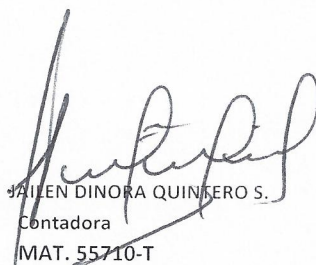 JAILEN DINORA QUINTERO S.
Contadora
MAT. 55710-T